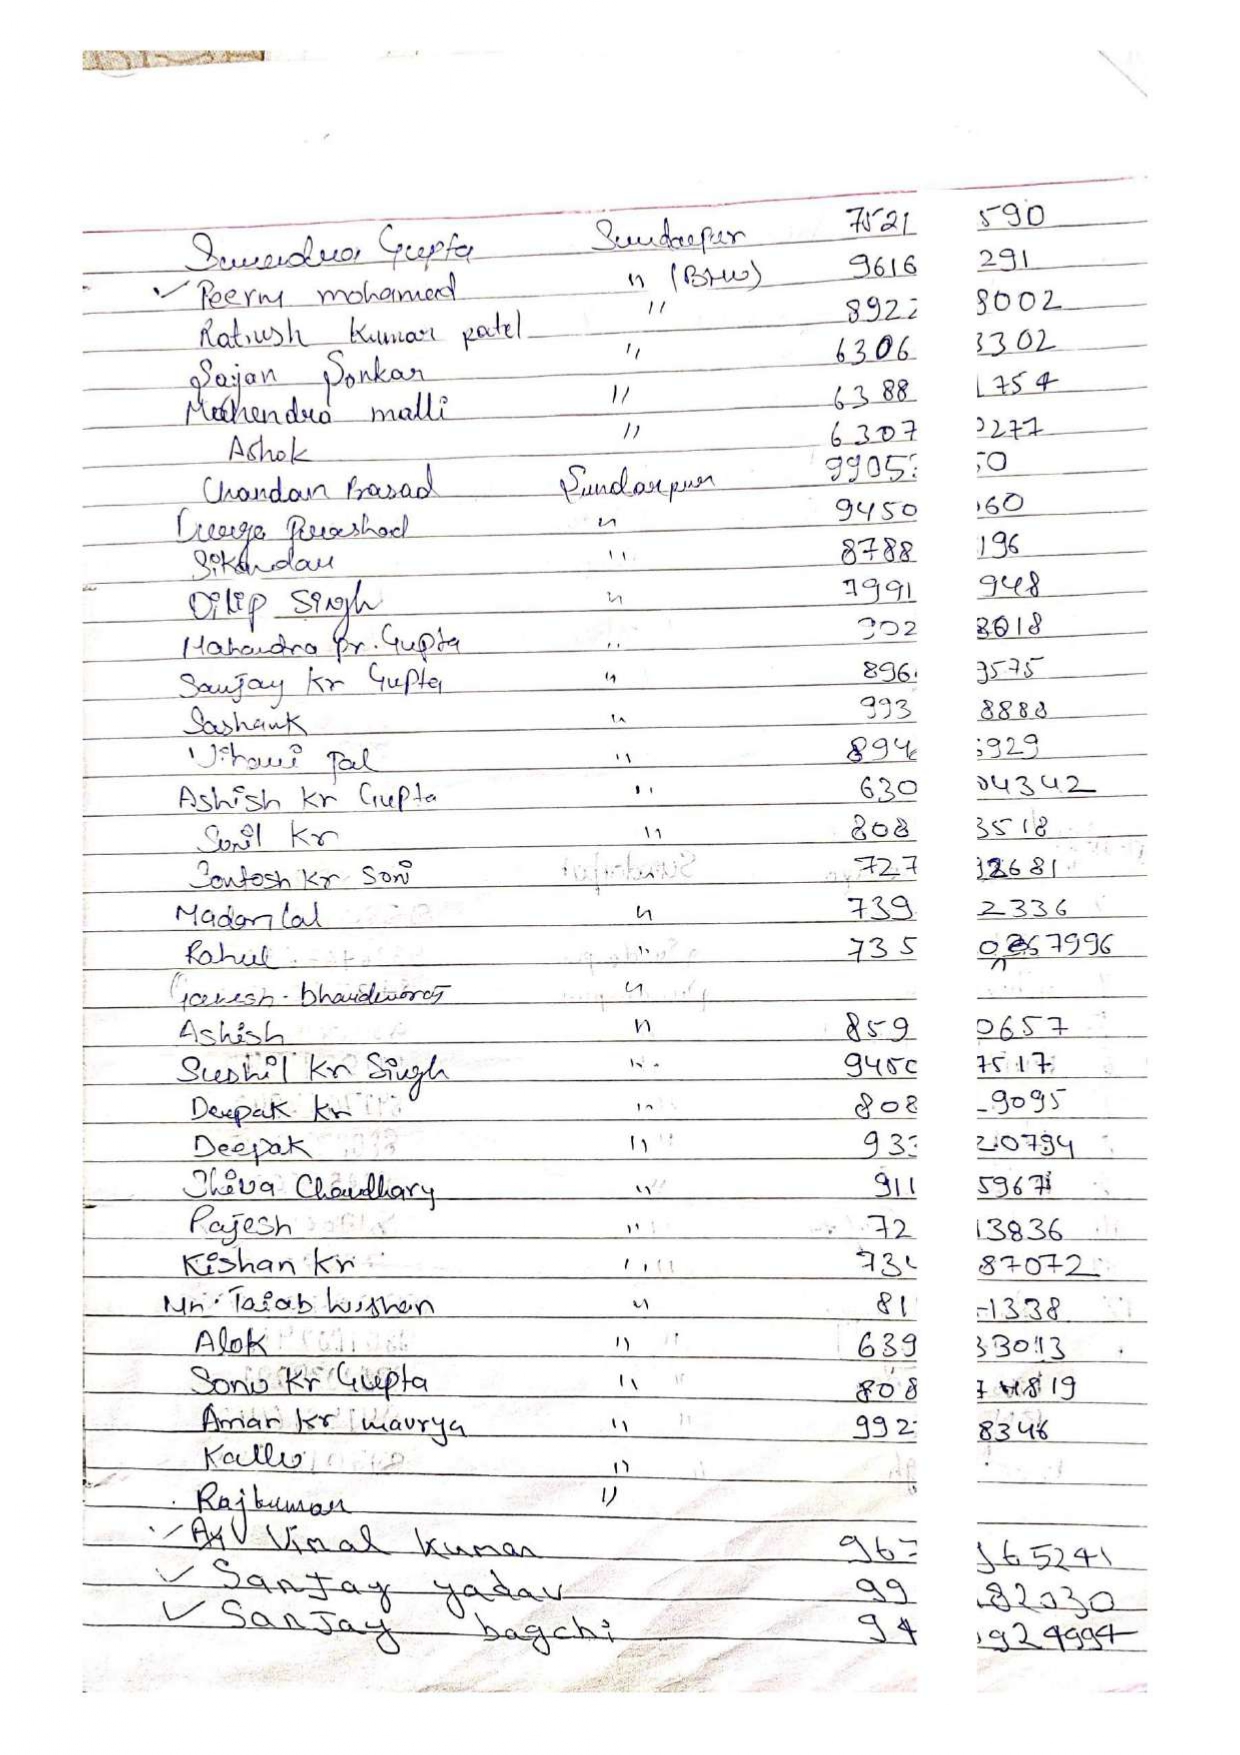 Surendra Gupta Sundarpur 7521 590
✓ Peeru mohamed " (BHU) 9616 291
Ratiush Kumar patel " 892 8002
Sajan Sonkar " 6306 3302
Mahendra malli " 6388 754
Ashok " 6307 277
Chandan Prasad Sundarpur 9905 0
" 9450 60
Sikandar " 8788 196
Dilip Singh " 7991 948
Mahendra pr. Gupta " 902 8018
Sanjay Kr Gupta " 896 9575
Sashank " 993 8888
Pal " 894 929
Ashish Kr Gupta " 630 04342
Sonil Kr " 808 3518
Santosh Kr Soni 727 2681
Madan Lal " 739 2336
Rahul " 735 67996
Ganesh "
Ashish " 859 0657
Sushil Kr Singh " 9450 7517
Deepak Kr " 808 9095
Deepak " 93 20794
Shiva Chaudhary " 911 5967
Rajesh " 72 13836
Kishan Kr " 73 87072
Mr. " 81 1338
Alok " 639 33013
Sonu Kr Gupta " 808 819
Aman Kr maurya " 992 8346
Kallu "
Rajkumar "
✓ Vimal Kumar 96 65241
✓ Sanjay yadav 99 82030
✓ Sanjay bagchi 94 924994